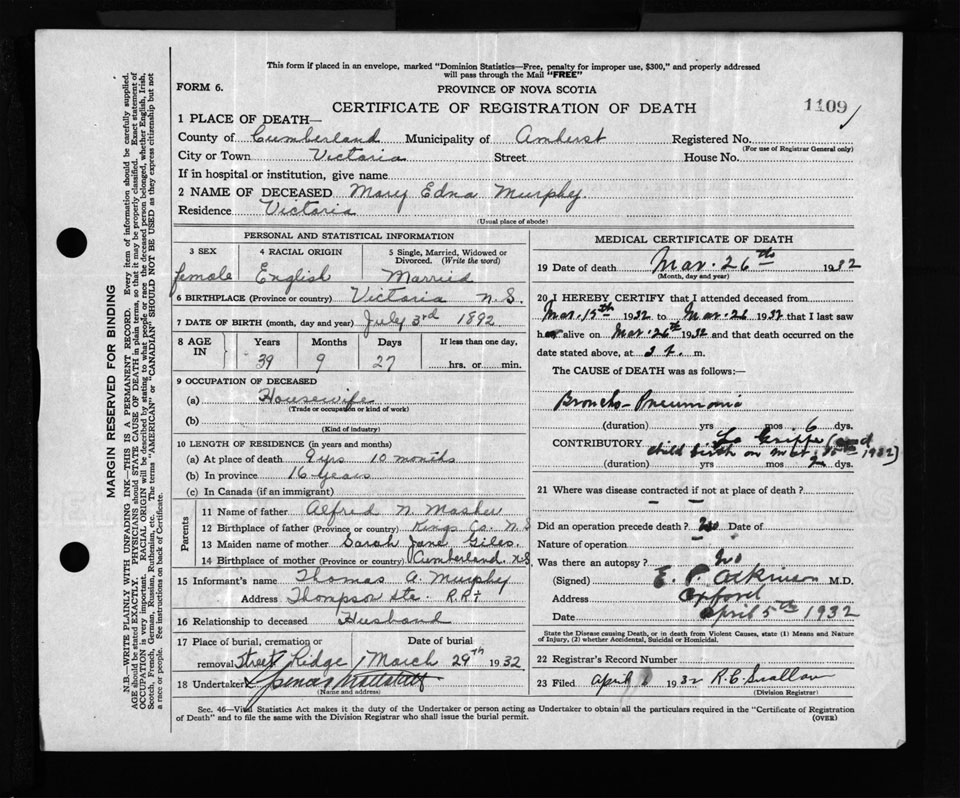 This form if placed in an envelope, marked "Dominion Statistics—Free, penalty for improper use, $300," and properly addressed
will pass through the Mail "FREE"
FORM 6.
PROVINCE OF NOVA SCOTIA
CERTIFICATE OF REGISTRATION OF DEATH
1109
1 PLACE OF DEATH—
County of Cumberland Municipality of Amherst Registered No.
(For use of Registrar General only)
City or Town Victoria Street House No.
If in hospital or institution, give name
2 NAME OF DECEASED Mary Edna Murphy
Residence Victoria
(Usual place of abode)
PERSONAL AND STATISTICAL INFORMATION
3 SEX 4 RACIAL ORIGIN 5 Single, Married, Widowed or
Divorced. (Write the word)
female English Married
6 BIRTHPLACE (Province or country) Victoria N.S.
7 DATE OF BIRTH (month, day and year) July 3rd 1892
8 AGE IN Years Months Days If less than one day,
39 9 27 hrs. or min.
9 OCCUPATION OF DECEASED
(a) Housewife
(Trade or occupation or kind of work)
(b)
(Kind of industry)
10 LENGTH OF RESIDENCE (in years and months)
(a) At place of death 9 yrs 10 months
(b) In province 16 Years
(c) In Canada (if an immigrant)
Parents
11 Name of father Alfred N. Mosher
12 Birthplace of father (Province or country) Kings Co. N.S
13 Maiden name of mother Sarah Jane Giles.
14 Birthplace of mother (Province or country) Cumberland N.S
15 Informant's name Thomas A. Murphy
Address Thompson Sta. R.R1
16 Relationship to deceased Husband
17 Place of burial, cremation or Date of burial
removal Street Ridge March 29th 1932
18 Undertaker Spencer
(Name and address)
MEDICAL CERTIFICATE OF DEATH
19 Date of death Mar. 26th 1932
(Month, day and year)
20 I HEREBY CERTIFY that I attended deceased from
Mar. 15th 1932 to Mar. 26 1932 that I last saw
her alive on Mar. 26th 1932 and that death occurred on the
date stated above, at m.
The CAUSE of DEATH was as follows:—
Broncho-Pneumonia
(duration) yrs mos 6 dys.
CONTRIBUTORY La Grippe (and
child birth on 15th 1932)
(duration) yrs mos dys.
21 Where was disease contracted if not at place of death?
Did an operation precede death? No Date of
Nature of operation
Was there an autopsy? No
(Signed) E. P. Atkinson M.D.
Address Oxford
Date April 5th 1932
State the Disease causing Death, or in death from Violent Causes, state (1) Means and Nature
of Injury, (2) whether Accidental, Suicidal or Homicidal.
22 Registrar's Record Number
23 Filed April 1932 R.C. Swallow
(Division Registrar)
Sec. 46—Vital Statistics Act makes it the duty of the Undertaker or person acting as Undertaker to obtain all the particulars required in the "Certificate of Registration
of Death" and to file the same with the Division Registrar who shall issue the burial permit.
(OVER)
MARGIN RESERVED FOR BINDING
N.B.—WRITE PLAINLY WITH UNFADING INK—THIS IS A PERMANENT RECORD. Every item of information should be carefully supplied.
AGE should be stated EXACTLY. PHYSICIANS should STATE CAUSE OF DEATH in plain terms, so that it may be properly classified. Exact statement of
OCCUPATION is very important. RACIAL ORIGIN will be described by stating to what people or race the deceased person belonged, whether English, Irish,
Scotch, French, German, Russian, Ruthenian, etc. The terms "AMERICAN" or "CANADIAN" SHOULD NOT BE USED as they express citizenship but not
a race or people. See instructions on back of Certificate.